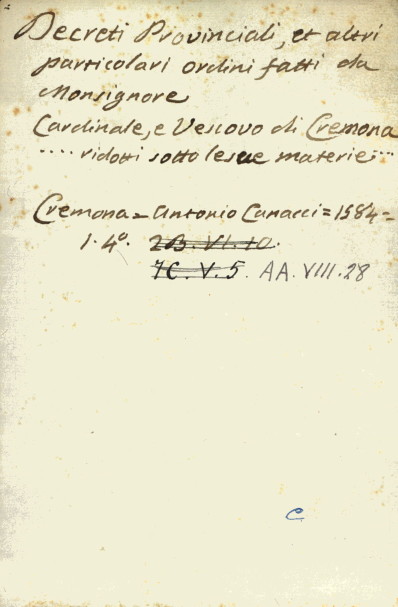 Decreti Provinciali, et altri
particolari ordini fatti da
Monsignore
Cardinale, e Vescovo di Cremona
.... ridotti sotto le sue materie ...
Cremona = Antonio Canacci = 1584 =
1. 4º. 2B. VI. 10.
7C. V. 5. AA. VIII. 28
C